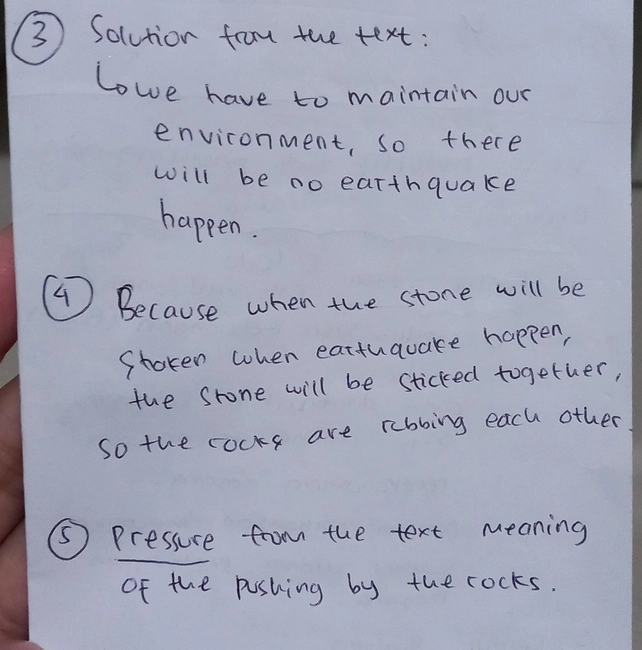 ③ Solution from the text:
↳ we have to maintain our
environment, so there
will be no earthquake
happen.
④ Because when the stone will be
shaken when earthuquake happen,
the stone will be sticked together,
so the rocks are rubbing each other.
⑤ Pressure from the text meaning
of the pushing by the rocks.